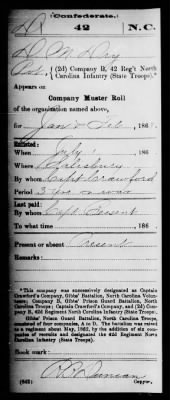 Confederate.
42
N.C.
(2d) Company B, 42 Reg't North
Carolina Infantry (State Troops).*
Appears on
Company Muster Roll
of the organization named above,
for Jan & Feb, 186
Enlisted:
When July 1
Where Salisbury
By whom Capt Crawford
Period 3 yrs or war
Last paid:
By whom Capt
To what time , 186
Present or absent Present
Remarks:
*This company was successively designated as Captain
Crawford's Company, Gibbs' Battalion, North Carolina Volun-
teers; Company B, Gibbs' Prison Guard Battalion, North
Carolina Troops; Captain Crawford's Company, and (2d) Com-
pany B, 42d Regiment North Carolina Infantry (State Troops).
Gibbs' Prison Guard Battalion, North Carolina Troops,
consisted of four companies, A to D. The battalion was raised
to a regiment about May, 1862, by the addition of six com-
panies and designated as the 42d Regiment North
Carolina Infantry (State Troops).
Book mark:
(642)
Copyist.